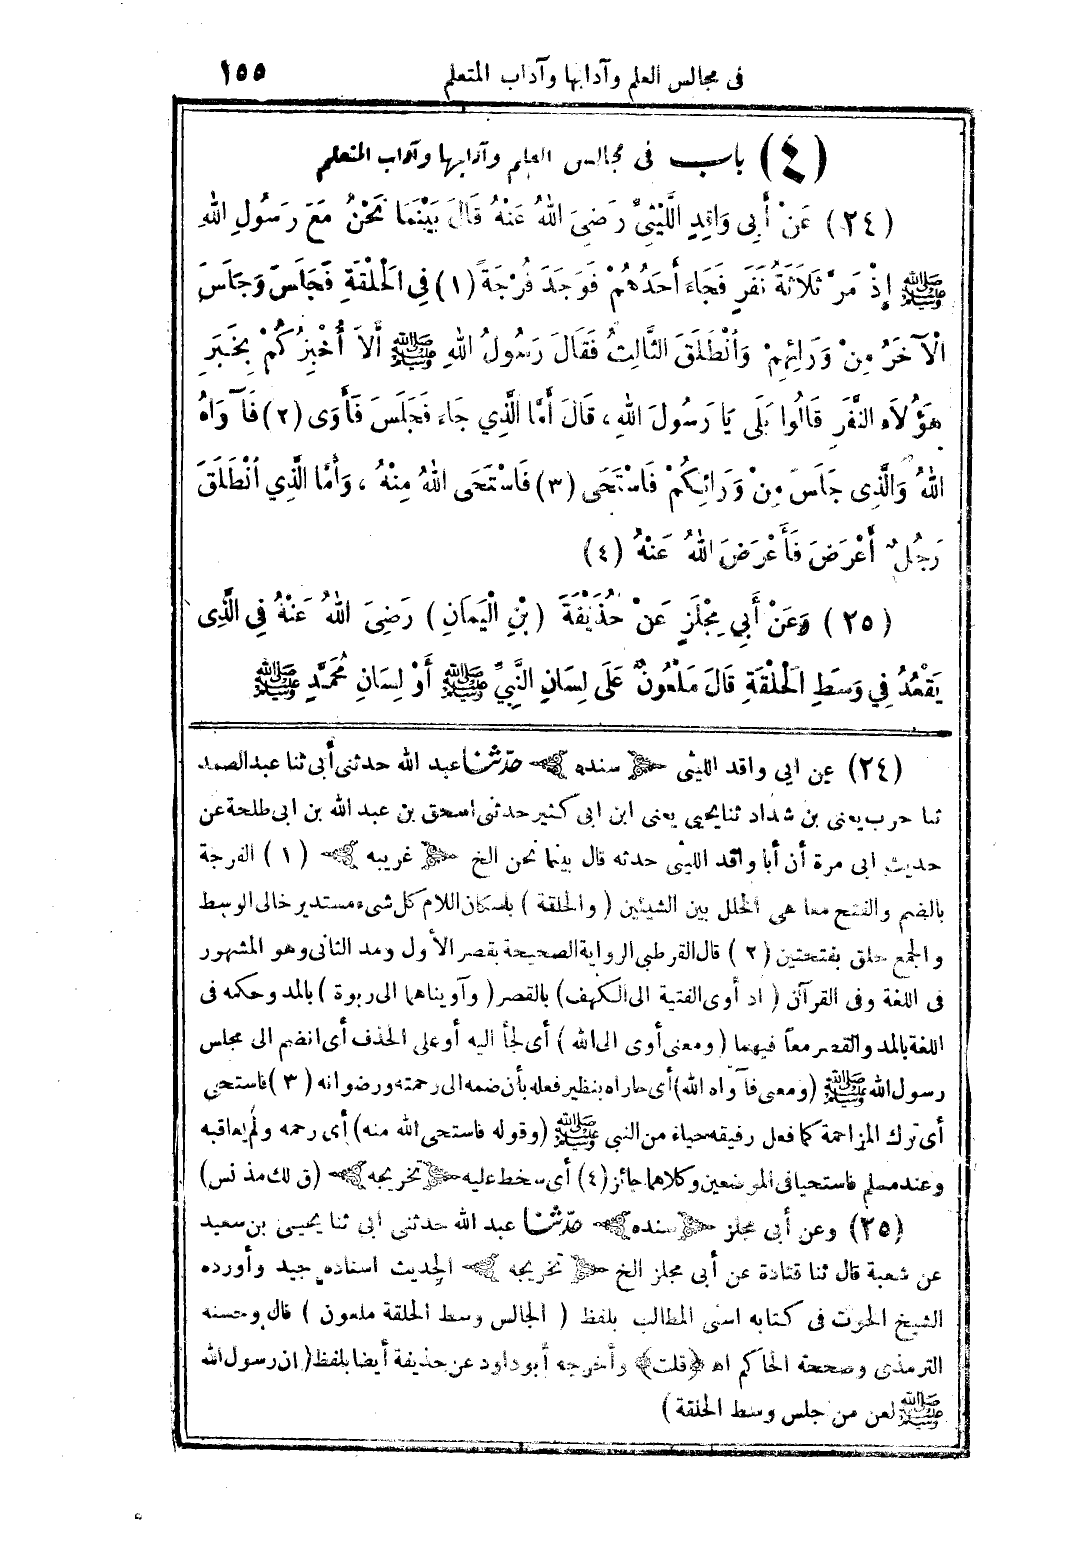 فى مجالس العلم وآدابها وآداب المتعلم ١٥٥
(٤) باب فى مجالس العلم وآدابها وآداب المتعلم
(٢٤) عَنْ أَبِى وَاقِدٍ اللَّيْثِىِّ رَضِىَ اللهُ عَنْهُ قَالَ بَيْنَمَا نَحْنُ مَعَ رَسُولِ اللهِ
ﷺ إِذْ مَرَّ ثَلَاثَةُ نَفَرٍ فَجَاءَ أَحَدُهُمْ فَوَجَدَ فُرْجَةً (١) فِى الْحَلْقَةِ فَجَلَسَ وَجَلَسَ
الْآخَرُ مِنْ وَرَائِهِمْ وَانْطَلَقَ الثَّالِثُ فَقَالَ رَسُولُ اللهِ ﷺ أَلَا أُخْبِرُكُمْ بِخَبَرِ
هَؤُلَاءِ النَّفَرِ قَالُوا بَلَى يَا رَسُولَ اللهِ، قَالَ أَمَّا الَّذِي جَاءَ فَجَلَسَ فَأَوَى (٢) فَآوَاهُ
اللهُ وَالَّذِى جَلَسَ مِنْ وَرَائِكُمْ فَاسْتَحَى (٣) فَاسْتَحَى اللهُ مِنْهُ، وَأَمَّا الَّذِي انْطَلَقَ
رَجُلٌ أَعْرَضَ فَأَعْرَضَ اللهُ عَنْهُ (٤)
(٢٥) وَعَنْ أَبِي مِجْلَزٍ عَنْ حُذَيْفَةَ (بْنِ الْيَمَانِ) رَضِىَ اللهُ عَنْهُ فِى الَّذِى
يَقْعُدُ فِي وَسَطِ الْحَلْقَةِ قَالَ مَلْعُونٌ عَلَى لِسَانِ النَّبِيِّ ﷺ أَوْ لِسَانِ مُحَمَّدٍ ﷺ
(٢٤) عن ابى واقد الليثى ﴿ سنده ﴾ حدّثنا عبد الله حدثنى أبى ثنا عبد الصمد
ثنا حرب يعنى بن شداد ثنا يحيى يعنى ابن ابى كثير حدثنى اسحق بن عبد الله بن ابى طلحة عن
حديث ابى مرة أن أبا واقد الليثى حدثه قال بينما نحن الخ ﴿ غريبه ﴾ (١) الفرجة
بالضم والفتح معا هى الخلل بين الشيئين (والحلقة) باسكان اللام كل شىء مستدير خالى الوسط
والجمع حلق بفتحتين (٢) قال القرطبى الرواية الصحيحة بقصر الأول ومد الثانى وهو المشهور
فى اللغة وفى القرآن (اذ أوى الفتية الى الكهف) بالقصر (وآويناهما الى ربوة) بالمد وحكمه فى
اللغة بالمد والقصر معاً فيهما (ومعنى أوى الى الله) أى لجأ اليه أو على الحذف أى انضم الى مجلس
رسول الله ﷺ (ومعنى فآواه الله) أى جازاه بنظير فعله بأن ضمه الى رحمته ورضوانه (٣) فاستحى
أى ترك المزاحمة كما فعل رفيقه حياء من النبي ﷺ (وقوله فاستحى الله منه) أى رحمه ولم يعاقبه
وعند مسلم فاستحيا فى الموضعين وكلاهما جائز (٤) أى سخط عليه ﴿ تخريجه ﴾ (ق لك مذ نس)
(٢٥) وعن أبى مجلز ﴿ سنده ﴾ حدّثنا عبد الله حدثنى ابى ثنا يحيى بن سعيد
عن شعبة قال ثنا قتادة عن أبي مجلز الخ ﴿ تخريجه ﴾ الحديث اسناده جيد وأورده
الشيخ الحوت فى كتابه اسنى المطالب بلفظ (الجالس وسط الحلقة ملعون) قال وحسنه
الترمذى وصححه الحاكم اه ﴿قلت﴾ وأخرجه أبو داود عن حذيفة أيضا بلفظ (ان رسول الله
ﷺ لعن من جلس وسط الحلقة)